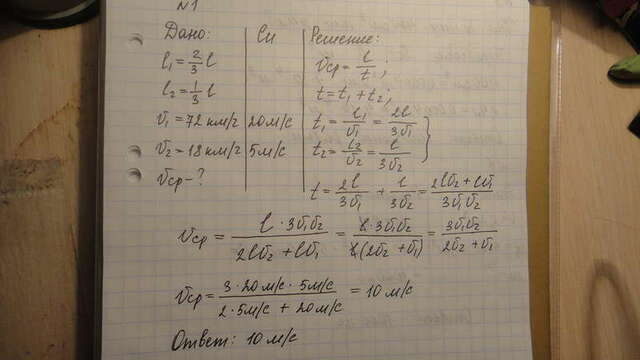 N1
Дано:
l₁ = 2/3 l
l₂ = 1/3 l
v₁ = 72 км/ч
v₂ = 18 км/ч
vср - ?
Си
20 м/с
5 м/с
Решение:
vср = l/t ;
t = t₁ + t₂ ;
t₁ = l₁/v₁ = 2l/3v₁
t₂ = l₂/v₂ = l/3v₂
t = 2l/3v₁ + l/3v₂ = (2lv₂ + lv₁)/3v₁v₂
vср = (l · 3v₁v₂)/(2lv₂ + lv₁) = (l · 3v₁v₂)/(l(2v₂ + v₁)) = 3v₁v₂/(2v₂ + v₁)
vср = (3 · 20 м/с · 5 м/с)/(2 · 5 м/с + 20 м/с) = 10 м/с
Ответ: 10 м/с